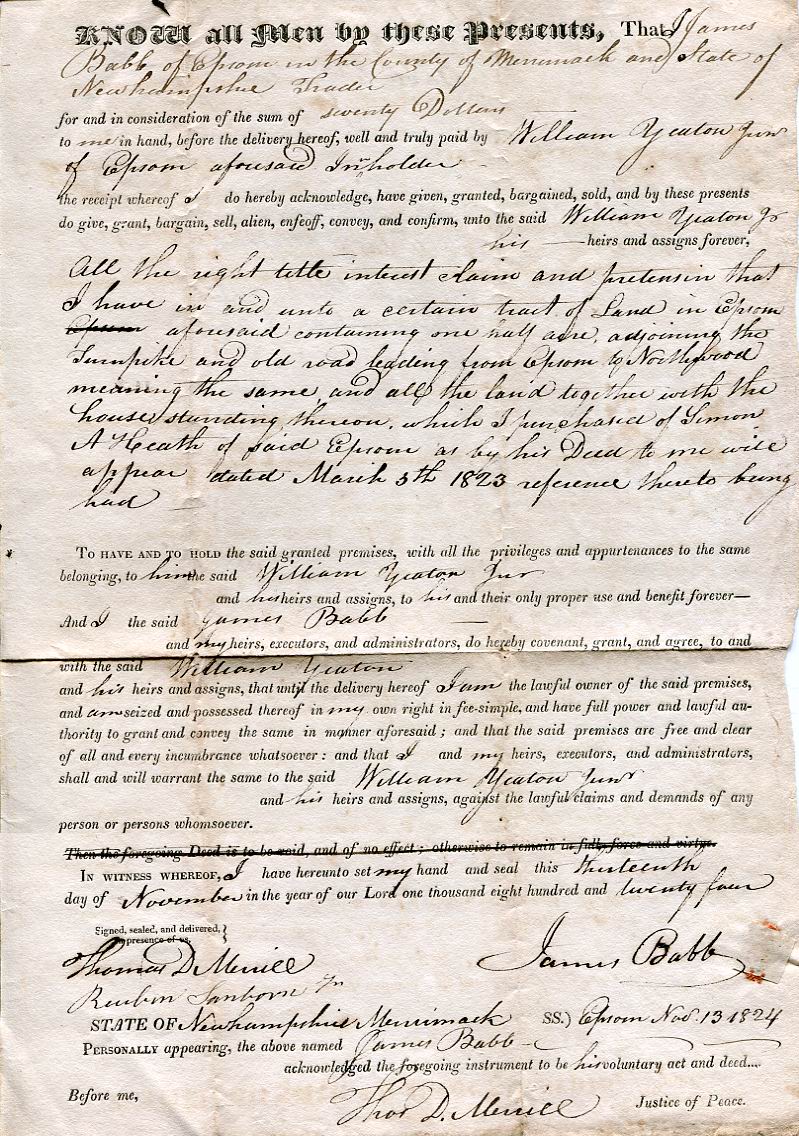 KNOW all Men by these Presents, That I James
Babb of Epsom in the County of Merrimack and State of
Newhampshire Trader
for and in consideration of the sum of seventy Dollars
to me in hand, before the delivery hereof, well and truly paid by William Yeaton Junr
of Epsom aforesaid Innholder
the receipt whereof I do hereby acknowledge, have given, granted, bargained, sold, and by these presents
do give, grant, bargain, sell, alien, enfeoff, convey, and confirm, unto the said William Yeaton Jr
his heirs and assigns forever,
All the right title interest claim and pretensin that
I have in and unto a certain tract of Land in Epsom
Epsom aforesaid containing one half acre, adjoining the
Turnpike and old road leading from Epsom to Nottingwood
meaning the same and all the land together with the
house standing thereon, which I purchased of Simon
A Heath of said Epsom as by his Deed to me will
appear dated March 5th 1823 reference thereto being
had
TO HAVE AND TO HOLD the said granted premises, with all the privileges and appurtenances to the same
belonging, to him the said William Yeaton Jur
and his heirs and assigns, to his and their only proper use and benefit forever—
And I the said James Babb
and my heirs, executors, and administrators, do hereby covenant, grant, and agree, to and
with the said William Yeaton
and his heirs and assigns, that until the delivery hereof I am the lawful owner of the said premises,
and am seized and possessed thereof in my own right in fee-simple, and have full power and lawful au-
thority to grant and convey the same in manner aforesaid; and that the said premises are free and clear
of all and every incumbrance whatsoever: and that I and my heirs, executors, and administrators,
shall and will warrant the same to the said William Yeaton Junr
and his heirs and assigns, against the lawful claims and demands of any
person or persons whomsoever.
Then the foregoing Deed is to be void, and of no effect; otherwise to remain in full force and virtue.
IN WITNESS WHEREOF, I have hereunto set my hand and seal this thirteenth
day of November in the year of our Lord one thousand eight hundred and twenty four
Signed, sealed, and delivered, }
in presence of us.
Thomas D. Merrill James Babb
Reuben Sanborn Jr
STATE OF Newhampshire Merrimack SS.) Epsom Nov. 13 1824
PERSONALLY appearing, the above named James Babb
acknowledged the foregoing instrument to be his voluntary act and deed....
Before me, Thos D. Merrill Justice of Peace.